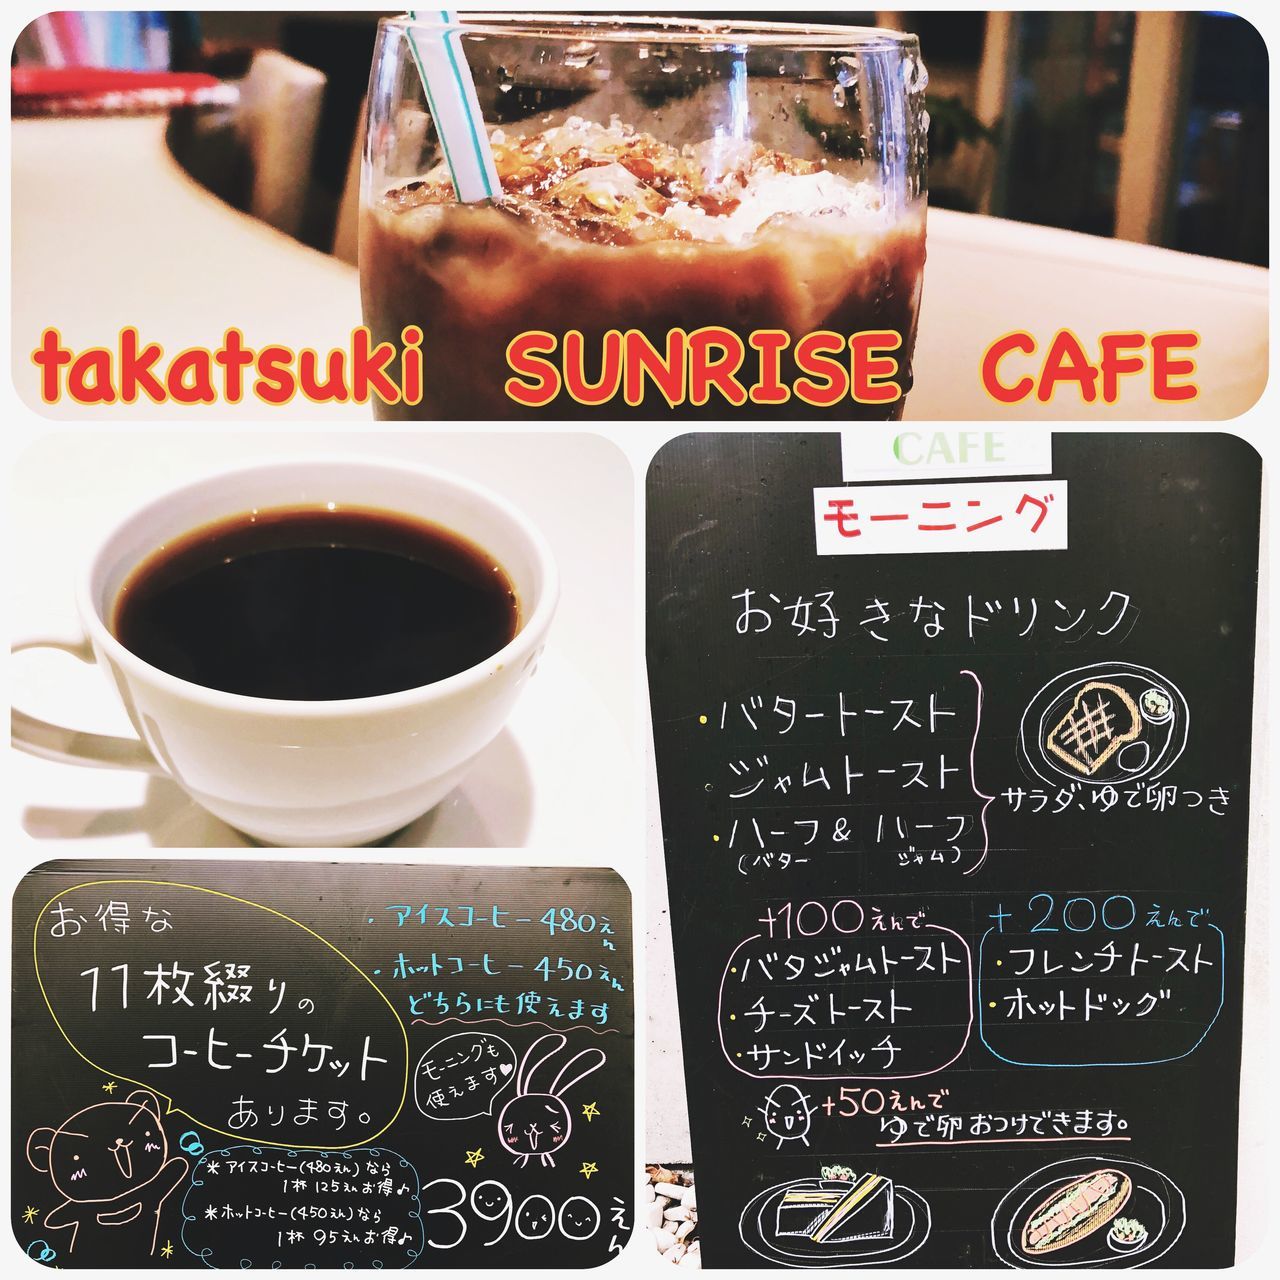 takatsuki SUNRISE CAFE
CAFE
モーニング
お好きなドリンク
・バタートースト
・ジャムトースト
・ハーフ & ハーフ
(バター ジャム)
サラダ、ゆで卵つき
+100えんで
・バタジャムトースト
・チーズトースト
・サンドイッチ
+200えんで
・フレンチトースト
・ホットドッグ
+50えんで
ゆで卵おつけできます。
お得な
11枚綴りの
コーヒーチケット
あります。
・アイスコーヒー480えん
・ホットコーヒー450えん
どちらにも使えます
モーニングも
使えます♥
*アイスコーヒー(480えん)なら
1杯125えんお得♪
*ホットコーヒー(450えん)なら
1杯95えんお得♪
3900えん